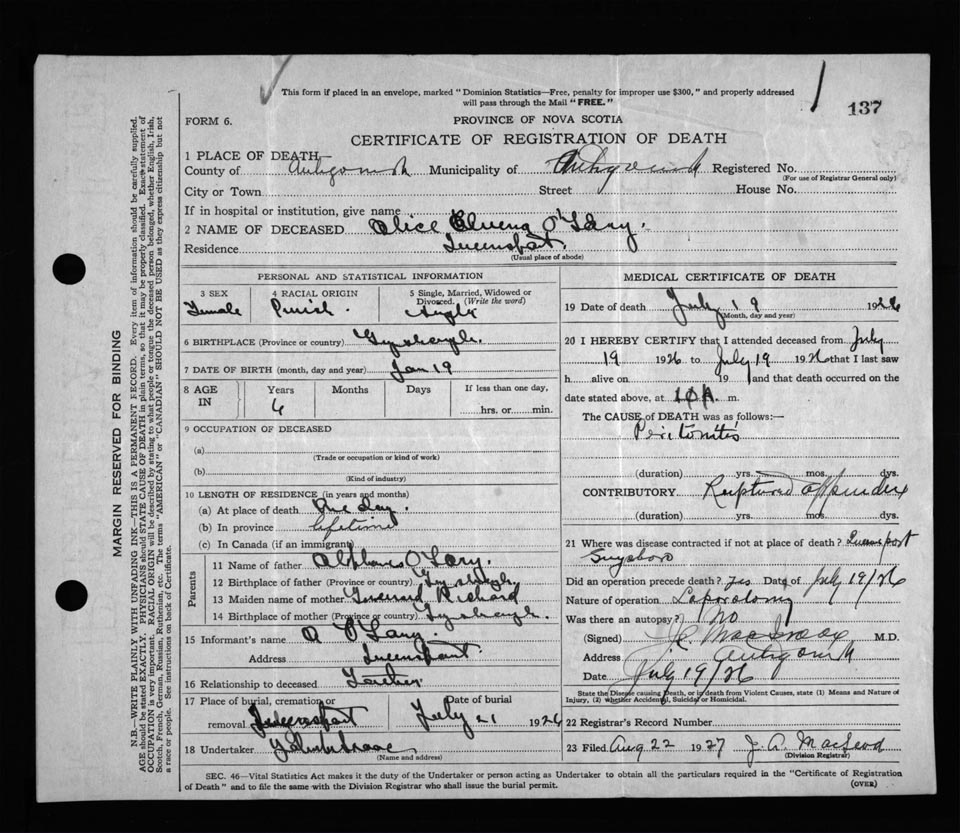 This form if placed in an envelope, marked "Dominion Statistics—Free, penalty for improper use $300," and properly addressed
will pass through the Mail "FREE."
137
FORM 6.
PROVINCE OF NOVA SCOTIA
CERTIFICATE OF REGISTRATION OF DEATH
1 PLACE OF DEATH
County of Antigonish Municipality of Antigonish Registered No.
(For use of Registrar General only)
City or Town Street House No.
If in hospital or institution, give name
2 NAME OF DECEASED Alice O'Lary.
Residence Queensport
(Usual place of abode)
MARGIN RESERVED FOR BINDING
N.B.—WRITE PLAINLY WITH UNFADING INK—THIS IS A PERMANENT RECORD. Every item of information should be carefully supplied.
AGE should be stated EXACTLY. PHYSICIANS should STATE CAUSE OF DEATH in plain terms, so that it may be properly classified. Exact statement of
OCCUPATION is very important. RACIAL ORIGIN will be described by stating to what people or tongue the deceased person belonged, whether English, Irish,
Scotch, French, German, Russian, Ruthenian, etc. The terms "AMERICAN" or "CANADIAN" SHOULD NOT BE USED as they express citizenship but not
a race or people. See instructions on back of Certificate.
PERSONAL AND STATISTICAL INFORMATION
3 SEX 4 RACIAL ORIGIN 5 Single, Married, Widowed or
Divorced. (Write the word)
Female Single
6 BIRTHPLACE (Province or country)
7 DATE OF BIRTH (month, day and year) Jan 19
8 AGE IN Years Months Days If less than one day,
6 hrs. or min.
9 OCCUPATION OF DECEASED
(a)
(Trade or occupation or kind of work)
(b)
(Kind of industry)
10 LENGTH OF RESIDENCE (in years and months)
(a) At place of death One day.
(b) In province lifetime
(c) In Canada (if an immigrant)
Parents
11 Name of father O'Lary.
12 Birthplace of father (Province or country)
13 Maiden name of mother Richard
14 Birthplace of mother (Province or country)
15 Informant's name O'Lary.
Address Queensport
16 Relationship to deceased Father
17 Place of burial, cremation or Date of burial
removal Queensport July 21 1926
18 Undertaker
(Name and address)
MEDICAL CERTIFICATE OF DEATH
19 Date of death July 19 1926
(Month, day and year)
20 I HEREBY CERTIFY that I attended deceased from July
19 1926 to July 19 1926 that I last saw
h alive on 19 and that death occurred on the
date stated above, at m.
The CAUSE of DEATH was as follows:—
Peritonitis
(duration) yrs. mos. dys.
CONTRIBUTORY Ruptured appendix
(duration) yrs. mos. dys.
21 Where was disease contracted if not at place of death? Queensport
Guysboro
Did an operation precede death? Yes Date of July 19/26
Nature of operation Laporatomy
Was there an autopsy? No
(Signed) M.D.
Address Antigonish
Date July 19/26
State the Disease causing Death, or in death from Violent Causes, state (1) Means and Nature of
Injury, (2) whether Accidental, Suicidal or Homicidal.
22 Registrar's Record Number
23 Filed Aug 22 1927 J. A. MacLeod
(Division Registrar)
SEC. 46—Vital Statistics Act makes it the duty of the Undertaker or person acting as Undertaker to obtain all the particulars required in the "Certificate of Registration
of Death" and to file the same with the Division Registrar who shall issue the burial permit.
(OVER)